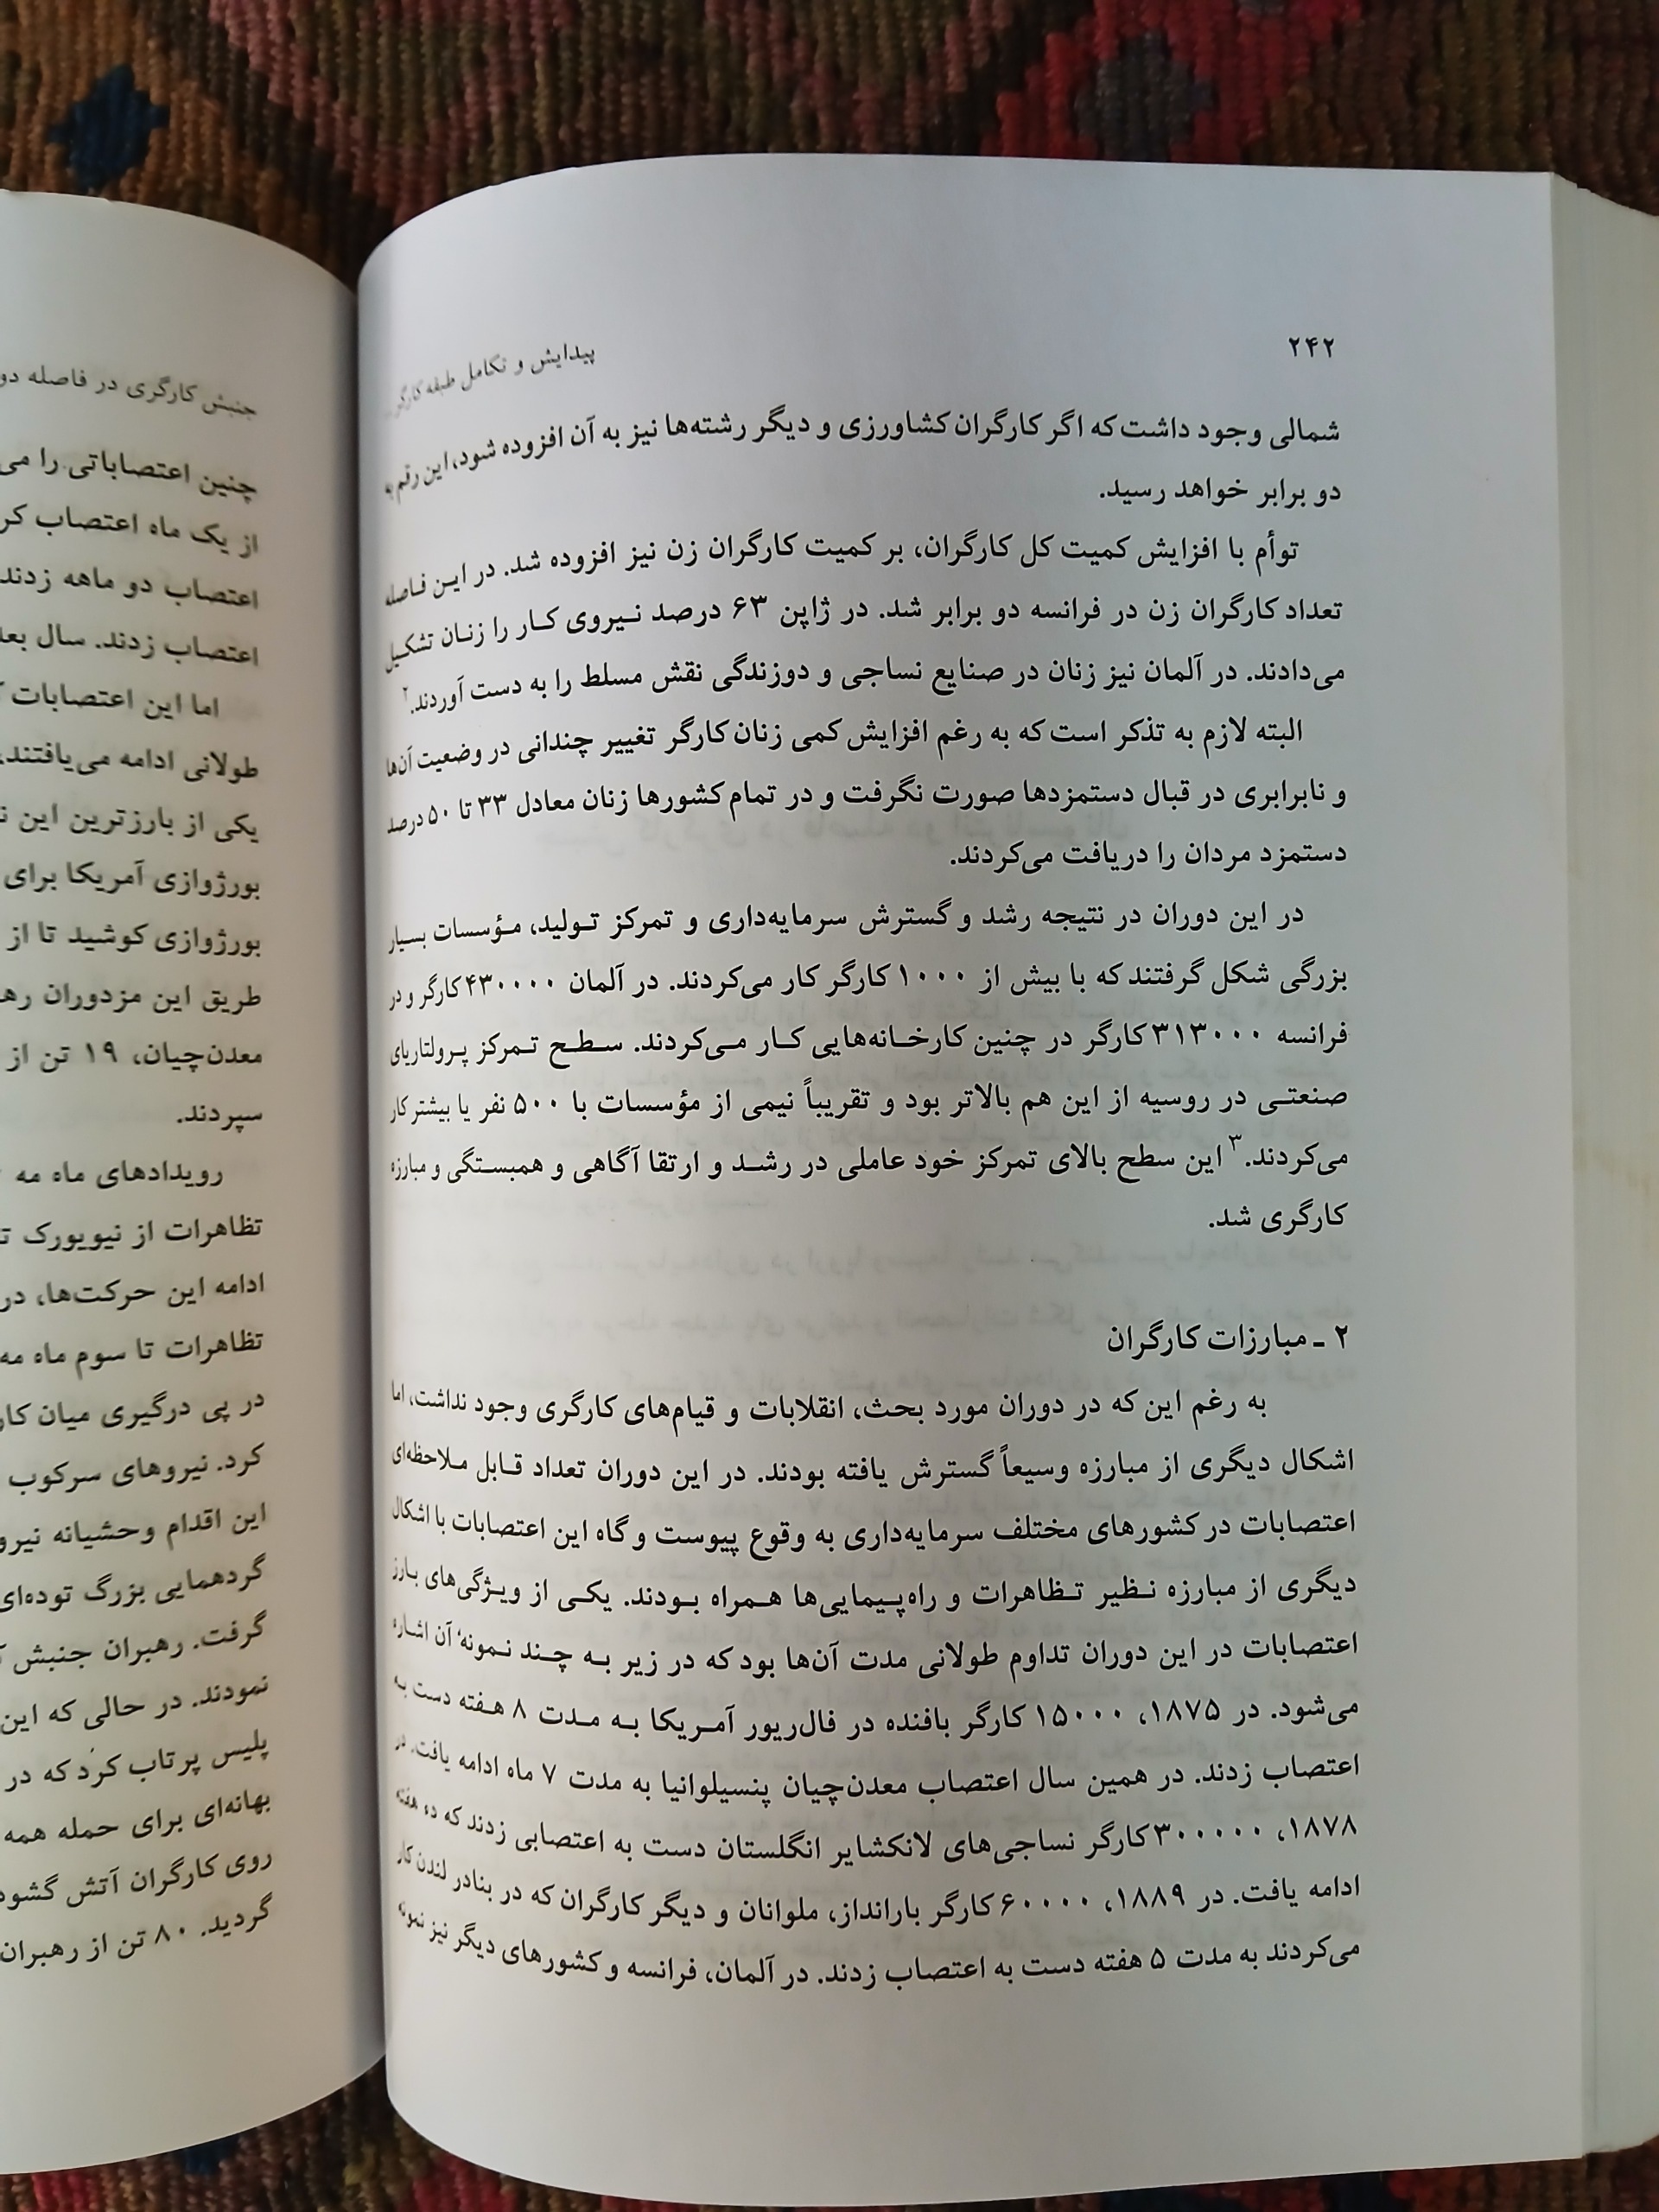 ۲۴۲
پیدایش و تکامل طبقه کارگر
شمالی وجود داشت که اگر کارگران کشاورزی و دیگر رشته‌ها نیز به آن افزوده شود، این رقم به
دو برابر خواهد رسید.
توأم با افزایش کمیت کل کارگران، بر کمیت کارگران زن نیز افزوده شد. در این فاصله
تعداد کارگران زن در فرانسه دو برابر شد. در ژاپن ۶۳ درصد نیروی کار را زنان تشکیل
می‌دادند. در آلمان نیز زنان در صنایع نساجی و دوزندگی نقش مسلط را به دست آوردند.۲
البته لازم به تذکر است که به رغم افزایش کمی زنان کارگر تغییر چندانی در وضعیت آن‌ها
و نابرابری در قبال دستمزدها صورت نگرفت و در تمام کشورها زنان معادل ۳۳ تا ۵۰ درصد
دستمزد مردان را دریافت می‌کردند.
در این دوران در نتیجه رشد و گسترش سرمایه‌داری و تمرکز تولید، مؤسسات بسیار
بزرگی شکل گرفتند که با بیش از ۱۰۰۰ کارگر کار می‌کردند. در آلمان ۴۳۰۰۰۰ کارگر و در
فرانسه ۳۱۳۰۰۰ کارگر در چنین کارخانه‌هایی کار می‌کردند. سطح تمرکز پرولتاریای
صنعتی در روسیه از این هم بالاتر بود و تقریباً نیمی از مؤسسات با ۵۰۰ نفر یا بیشتر کار
می‌کردند.۳ این سطح بالای تمرکز خود عاملی در رشد و ارتقا آگاهی و همبستگی و مبارزه
کارگری شد.
۲ ـ مبارزات کارگران
به رغم این که در دوران مورد بحث، انقلابات و قیام‌های کارگری وجود نداشت، اما
اشکال دیگری از مبارزه وسیعاً گسترش یافته بودند. در این دوران تعداد قابل ملاحظه‌ای
اعتصابات در کشورهای مختلف سرمایه‌داری به وقوع پیوست و گاه این اعتصابات با اشکال
دیگری از مبارزه نظیر تظاهرات و راه‌پیمایی‌ها همراه بودند. یکی از ویژگی‌های بارز
اعتصابات در این دوران تداوم طولانی مدت آن‌ها بود که در زیر به چند نمونهٔ آن اشاره
می‌شود. در ۱۸۷۵، ۱۵۰۰۰ کارگر بافنده در فال‌ریور آمریکا به مدت ۸ هفته دست به
اعتصاب زدند. در همین سال اعتصاب معدن‌چیان پنسیلوانیا به مدت ۷ ماه ادامه یافت. در
۱۸۷۸، ۳۰۰۰۰۰ کارگر نساجی‌های لانکشایر انگلستان دست به اعتصابی زدند که ده هفته
ادامه یافت. در ۱۸۸۹، ۶۰۰۰۰ کارگر بارانداز، ملوانان و دیگر کارگران که در بنادر لندن کار
می‌کردند به مدت ۵ هفته دست به اعتصاب زدند. در آلمان، فرانسه و کشورهای دیگر نیز نمونه
جنبش کارگری در فاصله دو
چنین اعتصاباتی را می
از یک ماه اعتصاب کر
اعتصاب دو ماهه زدند
اعتصاب زدند. سال بعد
اما این اعتصابات
طولانی ادامه می‌یافتند،
یکی از بارزترین این
بورژوازی آمریکا برای
بورژوازی کوشید تا از
طریق این مزدوران ره
معدن‌چیان، ۱۹ تن از
سپردند.
رویدادهای ماه مه
تظاهرات از نیویورک
ادامه این حرکت‌ها، در
تظاهرات تا سوم ماه مه
در پی درگیری میان کار
کرد. نیروهای سرکوب
این اقدام وحشیانه نیرو
گردهمایی بزرگ توده‌ای
گرفت. رهبران جنبش
نمودند. در حالی که این
پلیس پرتاب کرد که در
بهانه‌ای برای حمله همه
روی کارگران آتش گشود
گردید. ۸۰ تن از رهبران